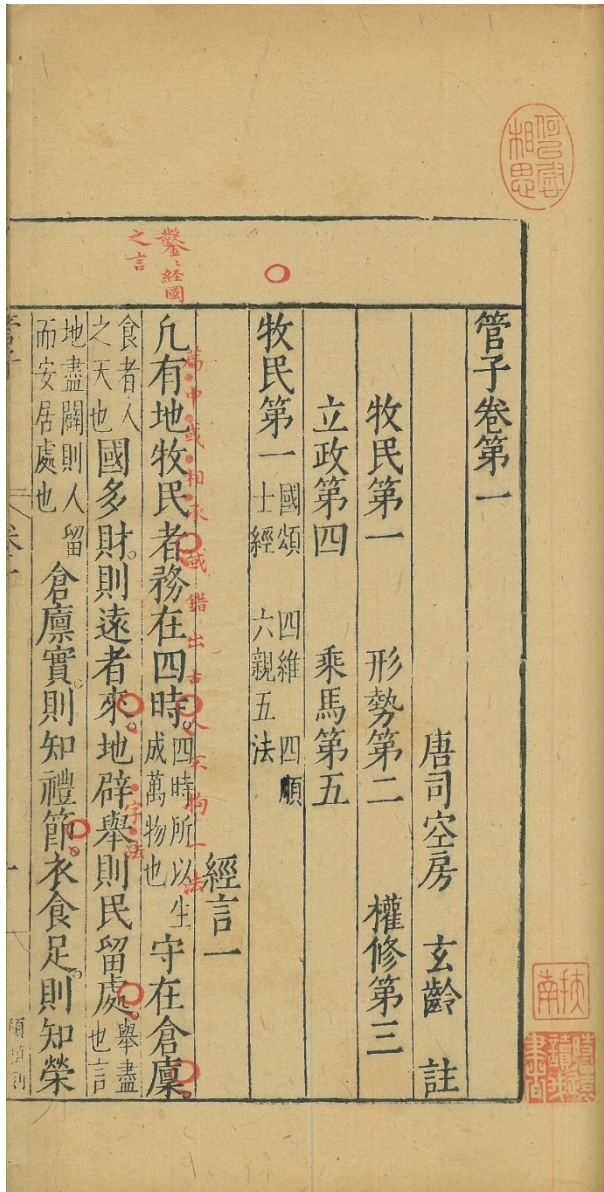 管子卷第一
唐司空房 玄齡 註
牧民第一 形勢第二 權修第三
立政第四 乘馬第五
牧民第一 國頌 四維 四順 士經 六親五法
經言一
凢有地牧民者務在四時四時所以生成萬物也守在倉廩
食者人之天也國多財則遠者來地辟舉則民留處舉盡也言
地盡闢則人留而安居處也倉廩實則知禮節衣食足則知榮
鑿鑿經國
之言
篇中或相承或錯出古人不拘一法
字法
何已字
相思